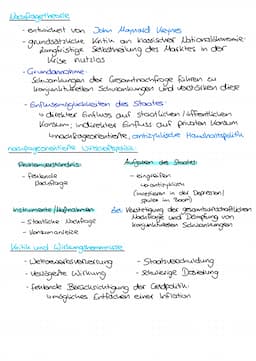 Nachfragetheorie
- entwickelt von John Maynard Keynes
- grundsätzliche Kritik an klassischer Nationalökonomie:
langfristige Selbstheilung des Marktes in der
Krise nutzlos
- Grundannahme:
Schwankungen der Gesamtnachfrage führen zu
konjunkturellen Schwankungen und verstärken diese
- Einflussmöglichkeiten des Staates:
↳ direkter Einfluss auf staatlichen/öffentlichen
Konsum; indirekter Einfluss auf privaten Konsum
↳nachfrageorientierte, antizyklische Haushaltspolitik
nachfrageorientierte Wirtschaftspolitik
Aufgaben des Staates
- fehlende
Nachfrage
- eingreifen
↳ antizyklisch
(investieren in der Depression/
sparen im Boom)
Instrumente/Maßnahmen
- staatliche Nachfrage
- Konsumanreize
Ziel: Verstetigung der gesamtwirtschaftlichen
Nachfrage und Dämpfung von
konjunkturellen Schwankungen
Kritik und Wirkungshemmnisse
- Wettbewerbsverzerrung
- Staatsverschuldung
- verzögerte Wirkung
- schwierige Dosierung
- fehlende Berücksichtigung der Geldpolitik
↳mögliches Entfachen einer Inflation